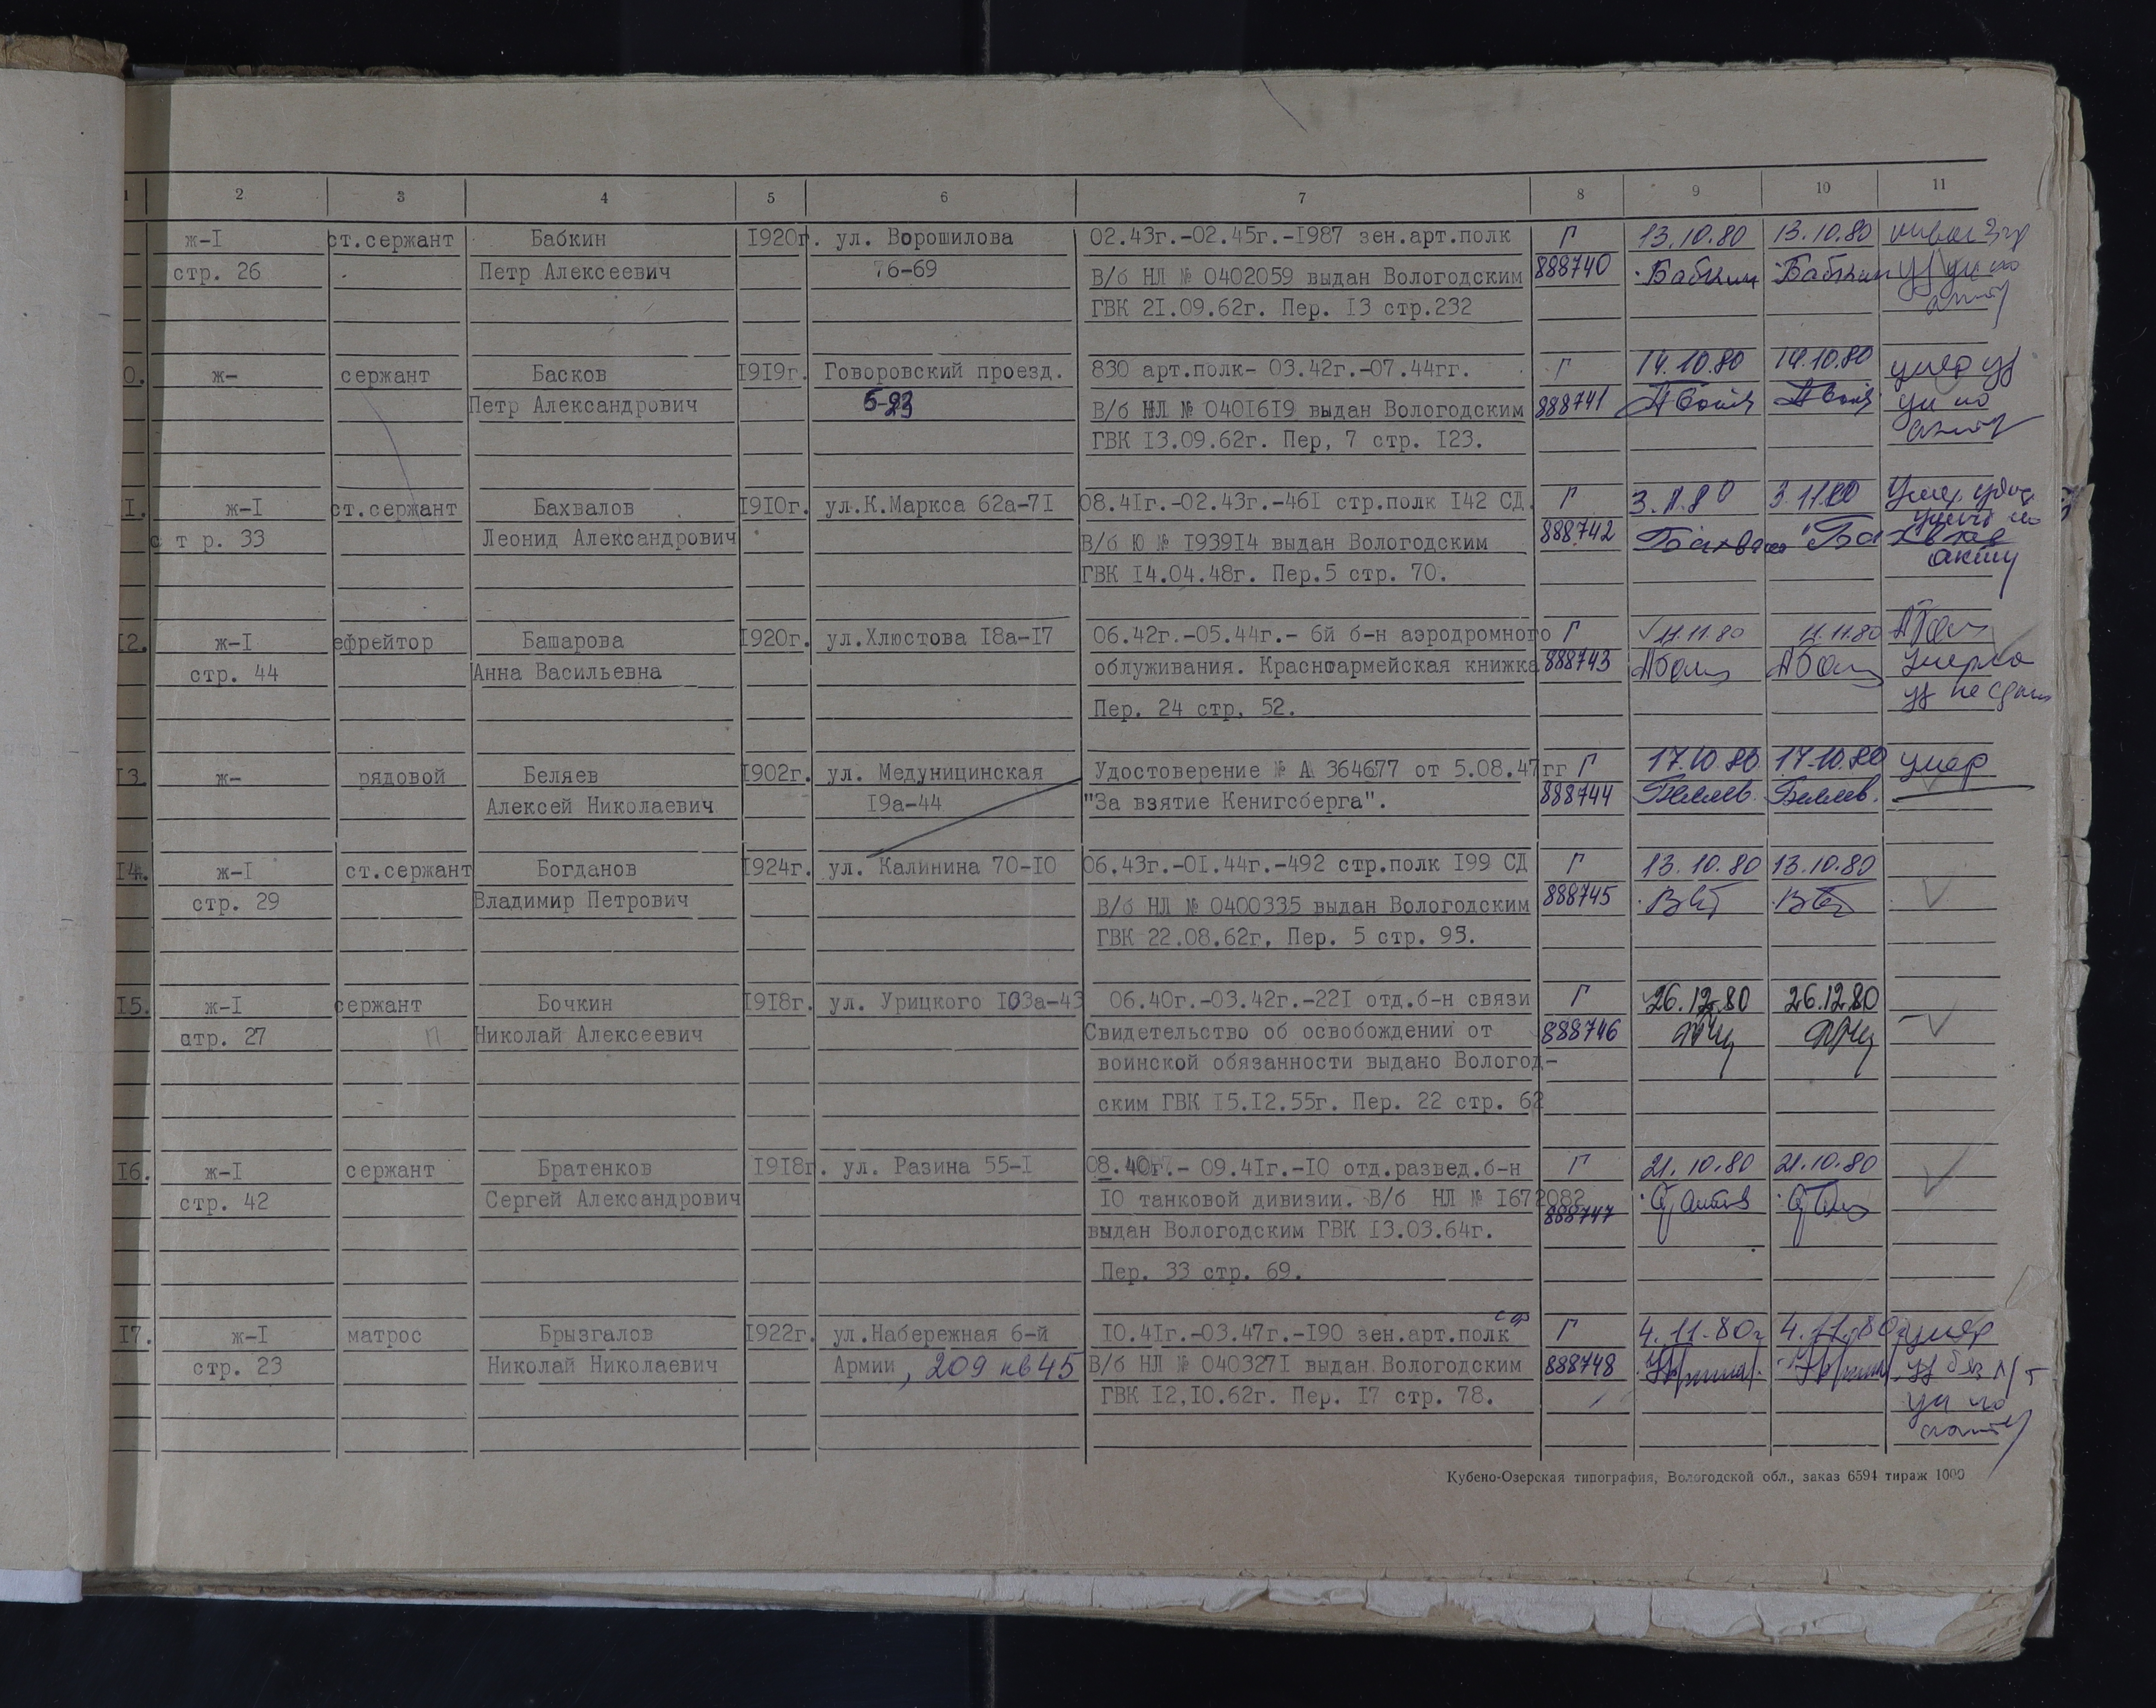 1 2 3 4 5 6 7 8 9 10 11
ж-I ст.сержант Бабкин 1920г. ул. Ворошилова 02.43г.-02.45г.-1987 зен.арт.полк Г 13.10.80 13.10.80
стр. 26 Петр Алексеевич 76-69 В/б НЛ № 0402059 выдан Вологодским 888740 Бабкин Бабкин
ГВК 21.09.62г. Пер. 13 стр.232
0. ж- сержант Басков 1919г. Говоровский проезд. 830 арт.полк- 03.42г.-07.44гг. Г 14.10.80 14.10.80
Петр Александрович В/б НЛ № 0401619 выдан Вологодским 888741
ГВК 13.09.62г. Пер, 7 стр. 123.
I. ж-I ст.сержант Бахвалов 1910г. ул.К.Маркса 62а-71 08.41г.-02.43г.-461 стр.полк 142 СД. Г 3.11.80 3.11.80
с т р. 33 Леонид Александрович В/б Ю № 193914 выдан Вологодским 888742
ГВК 14.04.48г. Пер.5 стр. 70. акту
12. ж-I ефрейтор Башарова 1920г. ул.Хлюстова 18а-17 06.42г.-05.44г.- 6й б-н аэродромного Г 11.80 11.80
стр. 44 Анна Васильевна облуживания. Красноармейская книжка 888743 умерла
Пер. 24 стр. 52.
13. ж- рядовой Беляев 1902г. ул. Медуницинская Удостоверение № А 364677 от 5.08.47гг Г 17.10.80 17.10.80 умер
Алексей Николаевич 19а-44 "За взятие Кенигсберга". 888744 Беляев. Беляев.
14. ж-I ст.сержант Богданов 1924г. ул. Калинина 70-10 06.43г.-01.44г.-492 стр.полк 199 СД Г 13.10.80 13.10.80
стр. 29 Владимир Петрович В/б НЛ № 0400335 выдан Вологодским 888745
ГВК 22.08.62г, Пер. 5 стр. 95.
15. ж-I сержант Бочкин 1918г. ул. Урицкого 103а-43 06.40г.-03.42г.-221 отд.б-н связи Г 26.12.80 26.12.80
стр. 27 Николай Алексеевич Свидетельство об освобождении от 888746
воинской обязанности выдано Вологод-
ским ГВК 15.12.55г. Пер. 22 стр. 62
16. ж-I сержант Братенков 1918г. ул. Разина 55-1 08.40г.- 09.41г.-10 отд.развед.б-н Г 21.10.80 21.10.80
стр. 42 Сергей Александрович 10 танковой дивизии. В/б НЛ № 1672082 888747
выдан Вологодским ГВК 13.03.64г.
Пер. 33 стр. 69.
17. ж-I матрос Брызгалов 1922г. ул.Набережная 6-й 10.41г.-03.47г.-190 зен.арт.полк Г 4.11.80г 4.11.80г умер
стр. 23 Николай Николаевич Армии, 209 кв 45 В/б НЛ № 0403271 выдан Вологодским 888748
ГВК 12,10.62г. Пер. 17 стр. 78.
Кубено-Озерская типография, Вологодской обл., заказ 6594 тираж 1000